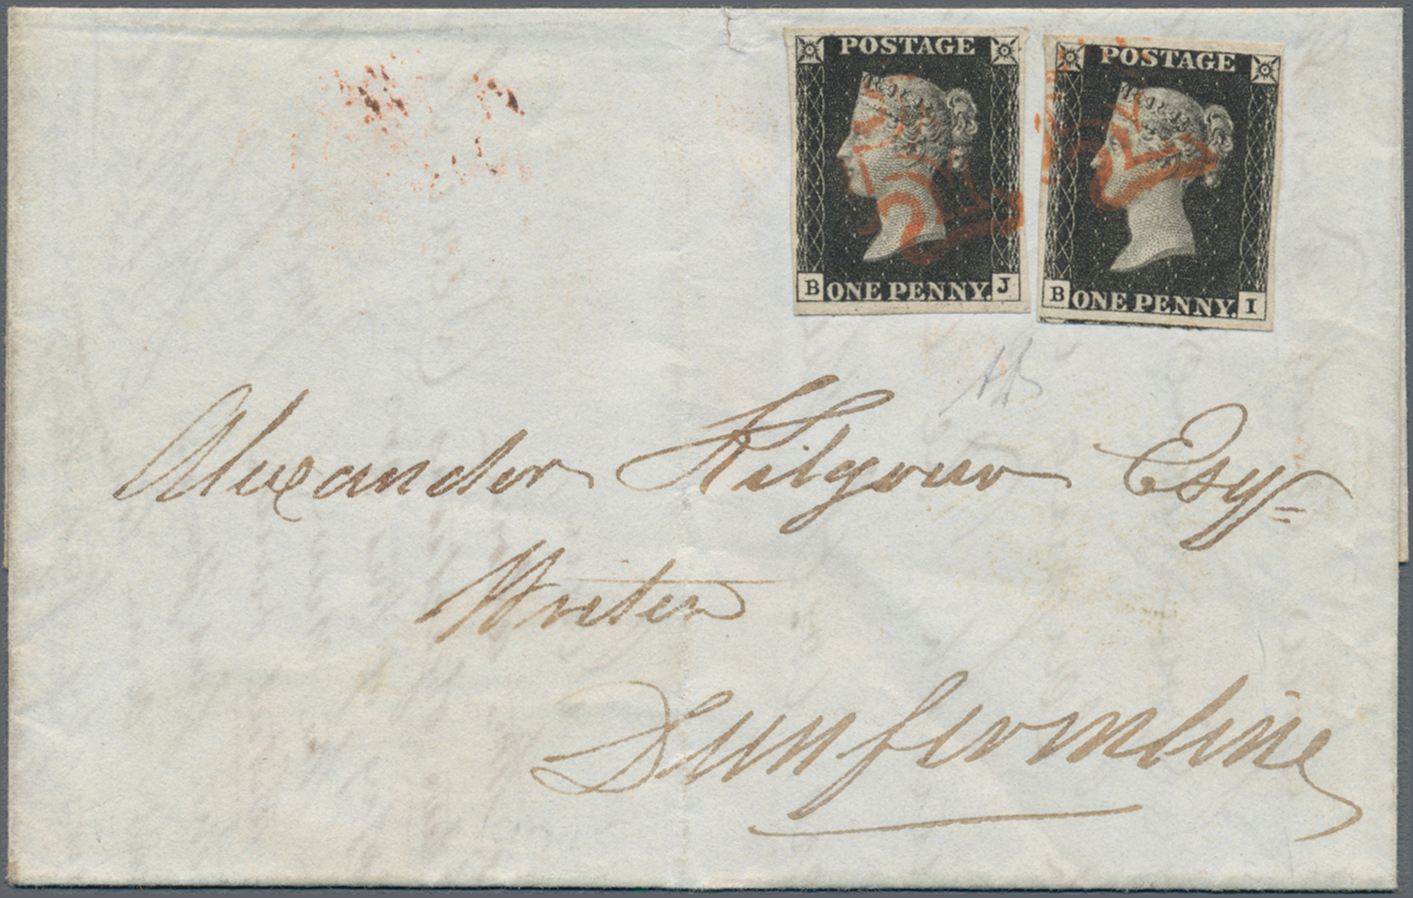 POSTAGE
B ONE PENNY. J
POSTAGE
B ONE PENNY. I
Alexander Kilgour Esqr
Writer
Dunfermline